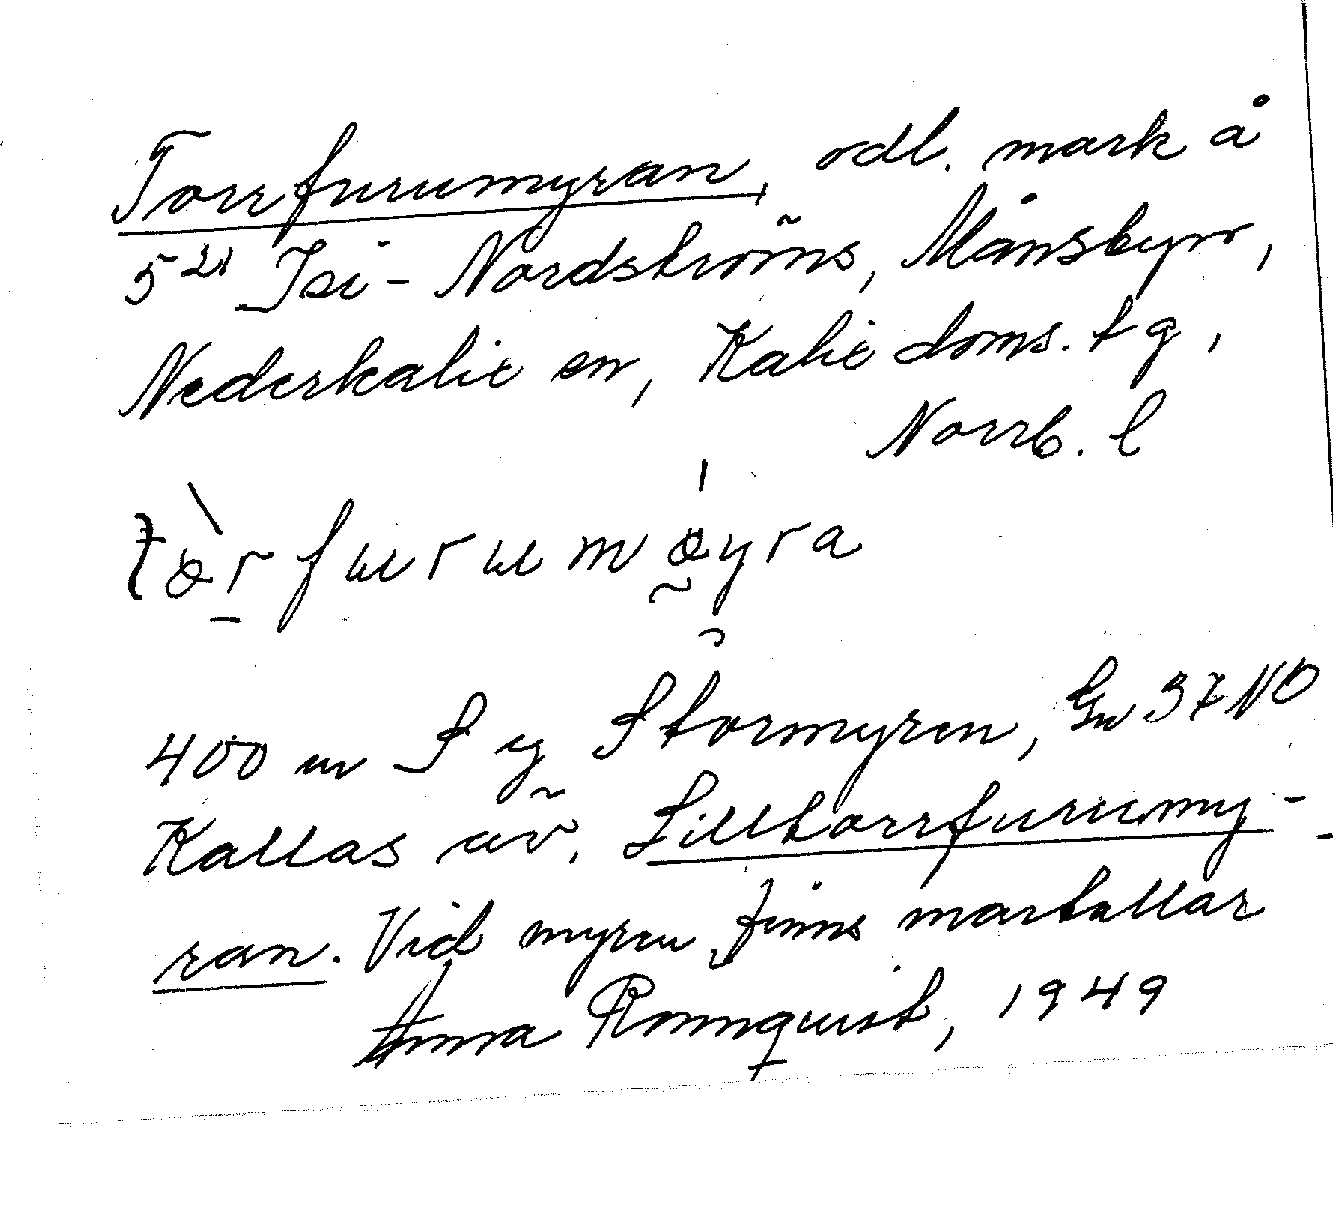 Torrfurumyran, odl. mark å
5²¹ Isi-Nordströms, Månsbyn,
Nederkalix sn, Kalix doms. tg,
Norrb. l
400 m S eg Stormyren, Gn 37 NO
Kallas äv. Lilltorrfurumy-
ran. Vid myren finns martallar
Anna Rönnquist, 1949